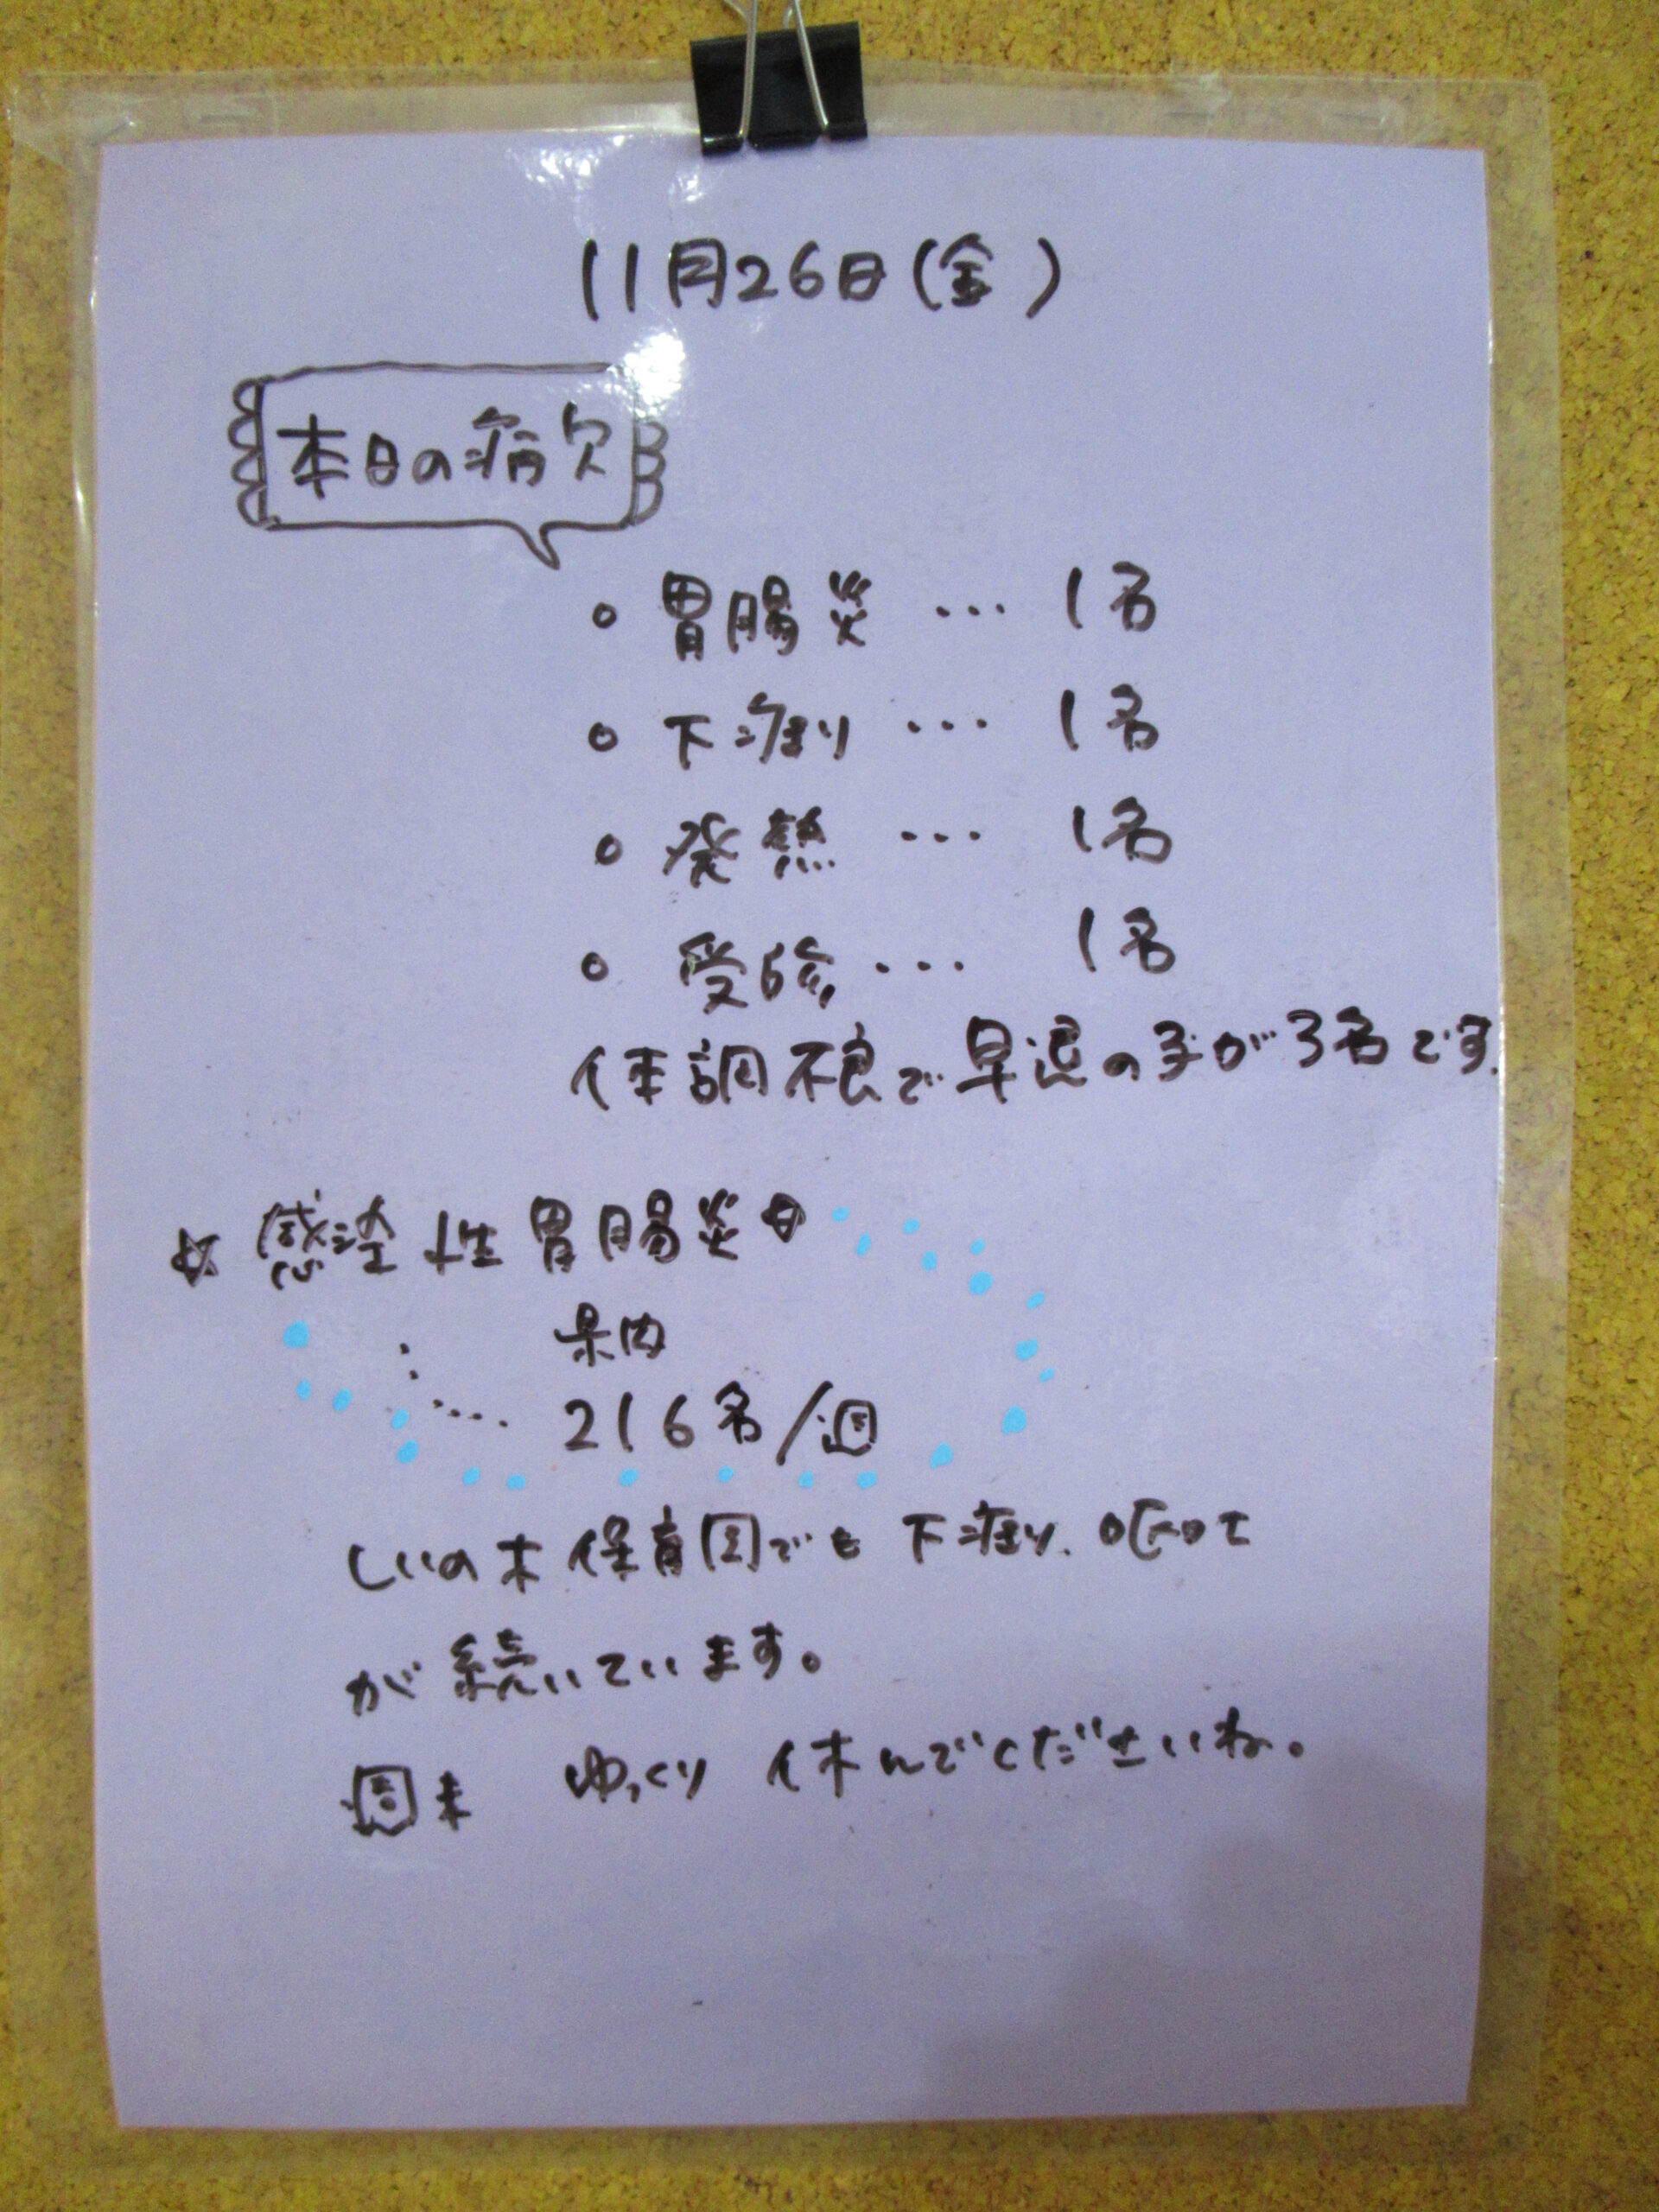 11月26日(金)
本日の病欠
○ 胃腸炎 … 1名
○ 下痢り … 1名
○ 発熱 … 1名
○ 受診 … 1名
体調不良で早退の子が3名です.
☆ 感染性胃腸炎
県内
…. 216名/週
しいの木保育園でも下痢り、嘔吐
が続いています。
週末 ゆっくり 休んでくださいね。